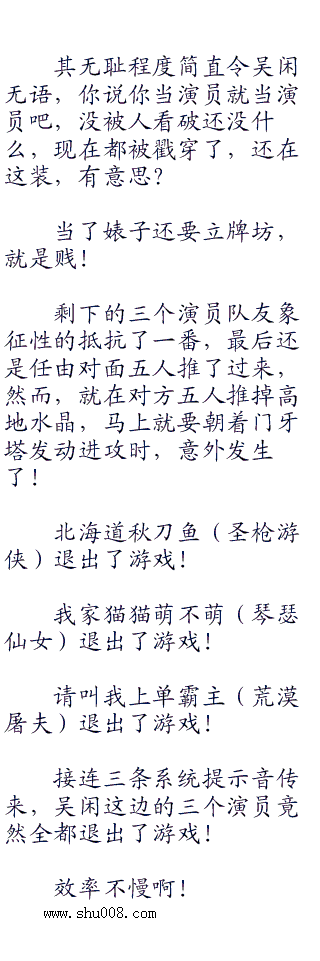 其无耻程度简直令吴闲
无语，你说你当演员就当演
员吧，没被人看破还没什
么，现在都被戳穿了，还在
这装，有意思？
当了婊子还要立牌坊，
就是贱！
剩下的三个演员队友象
征性的抵抗了一番，最后还
是任由对面五人推了过来，
然而，就在对方五人推掉高
地水晶，马上就要朝着门牙
塔发动进攻时，意外发生
了！
北海道秋刀鱼（圣枪游
侠）退出了游戏！
我家猫猫萌不萌（琴瑟
仙女）退出了游戏！
请叫我上单霸主（荒漠
屠夫）退出了游戏！
接连三条系统提示音传
来，吴闲这边的三个演员竟
然全都退出了游戏！
效率不慢啊！
www.shu008.com